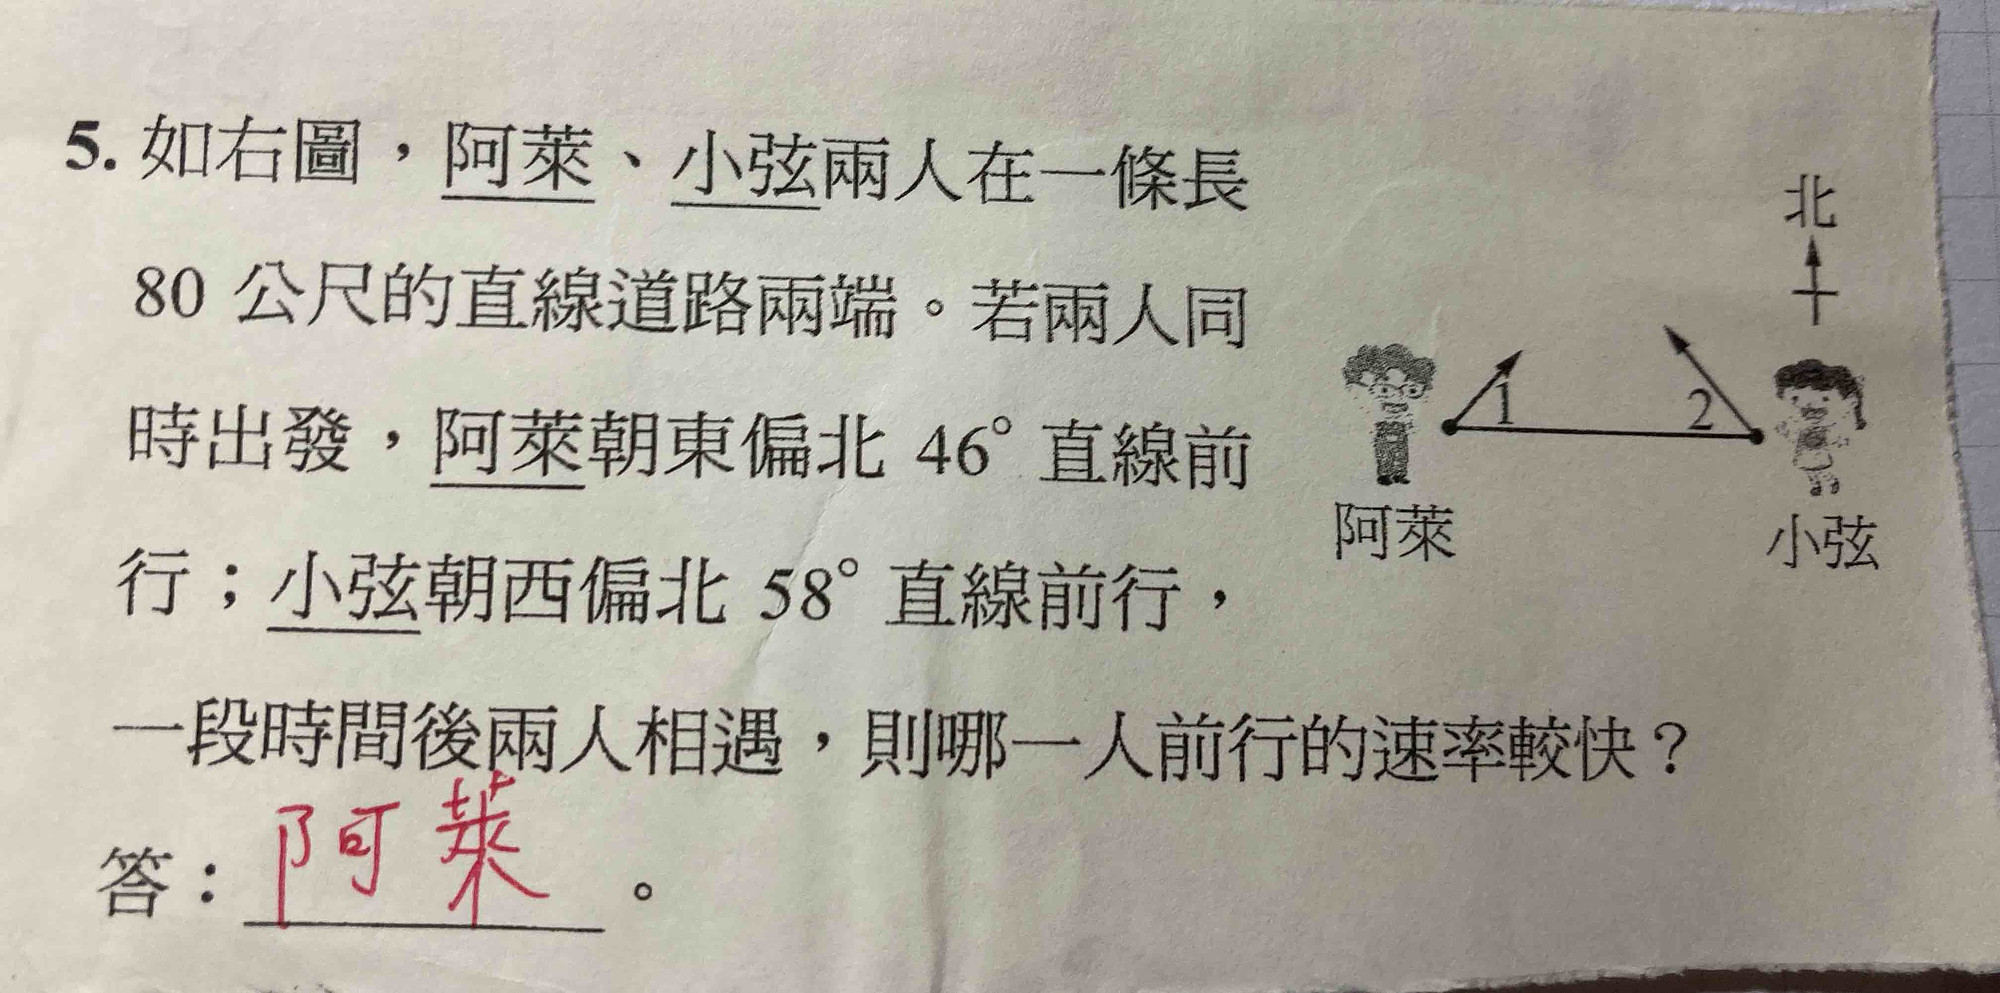 5. 如右圖，阿萊、小弦兩人在一條長
80 公尺的直線道路兩端。若兩人同
時出發，阿萊朝東偏北 46° 直線前
行；小弦朝西偏北 58° 直線前行，
一段時間後兩人相遇，則哪一人前行的速率較快？
答：阿萊。
北
1
2
阿萊
小弦